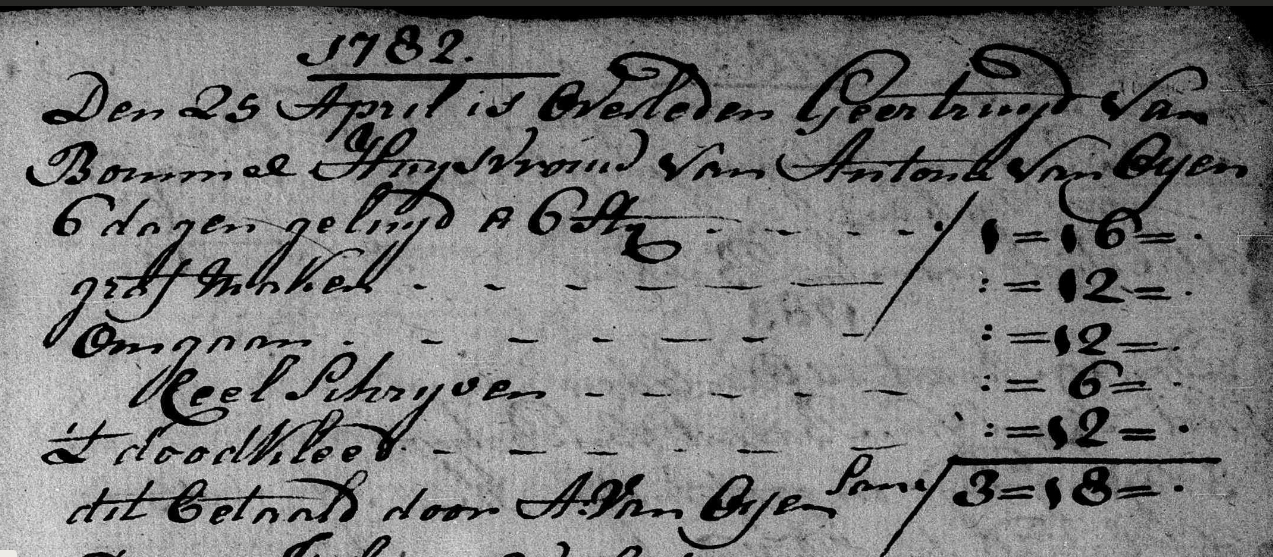 1782.
Den 25 April is Overleden Geertruyd Van
Bommel Huysvrouw Van Antonie Van Oyen
6 dagen geluyd a 6 St - - - - 1 = 16 = .
graf maken - - - - - - : = 12 = .
Omgaan - - - - - - : = 12 = .
Ceel Schryven - - - - - : = 6 = .
't doodkleed - - - - - - : = 12 = .
dit betaald door A: Van Oyen Sam 3 = 18 = .